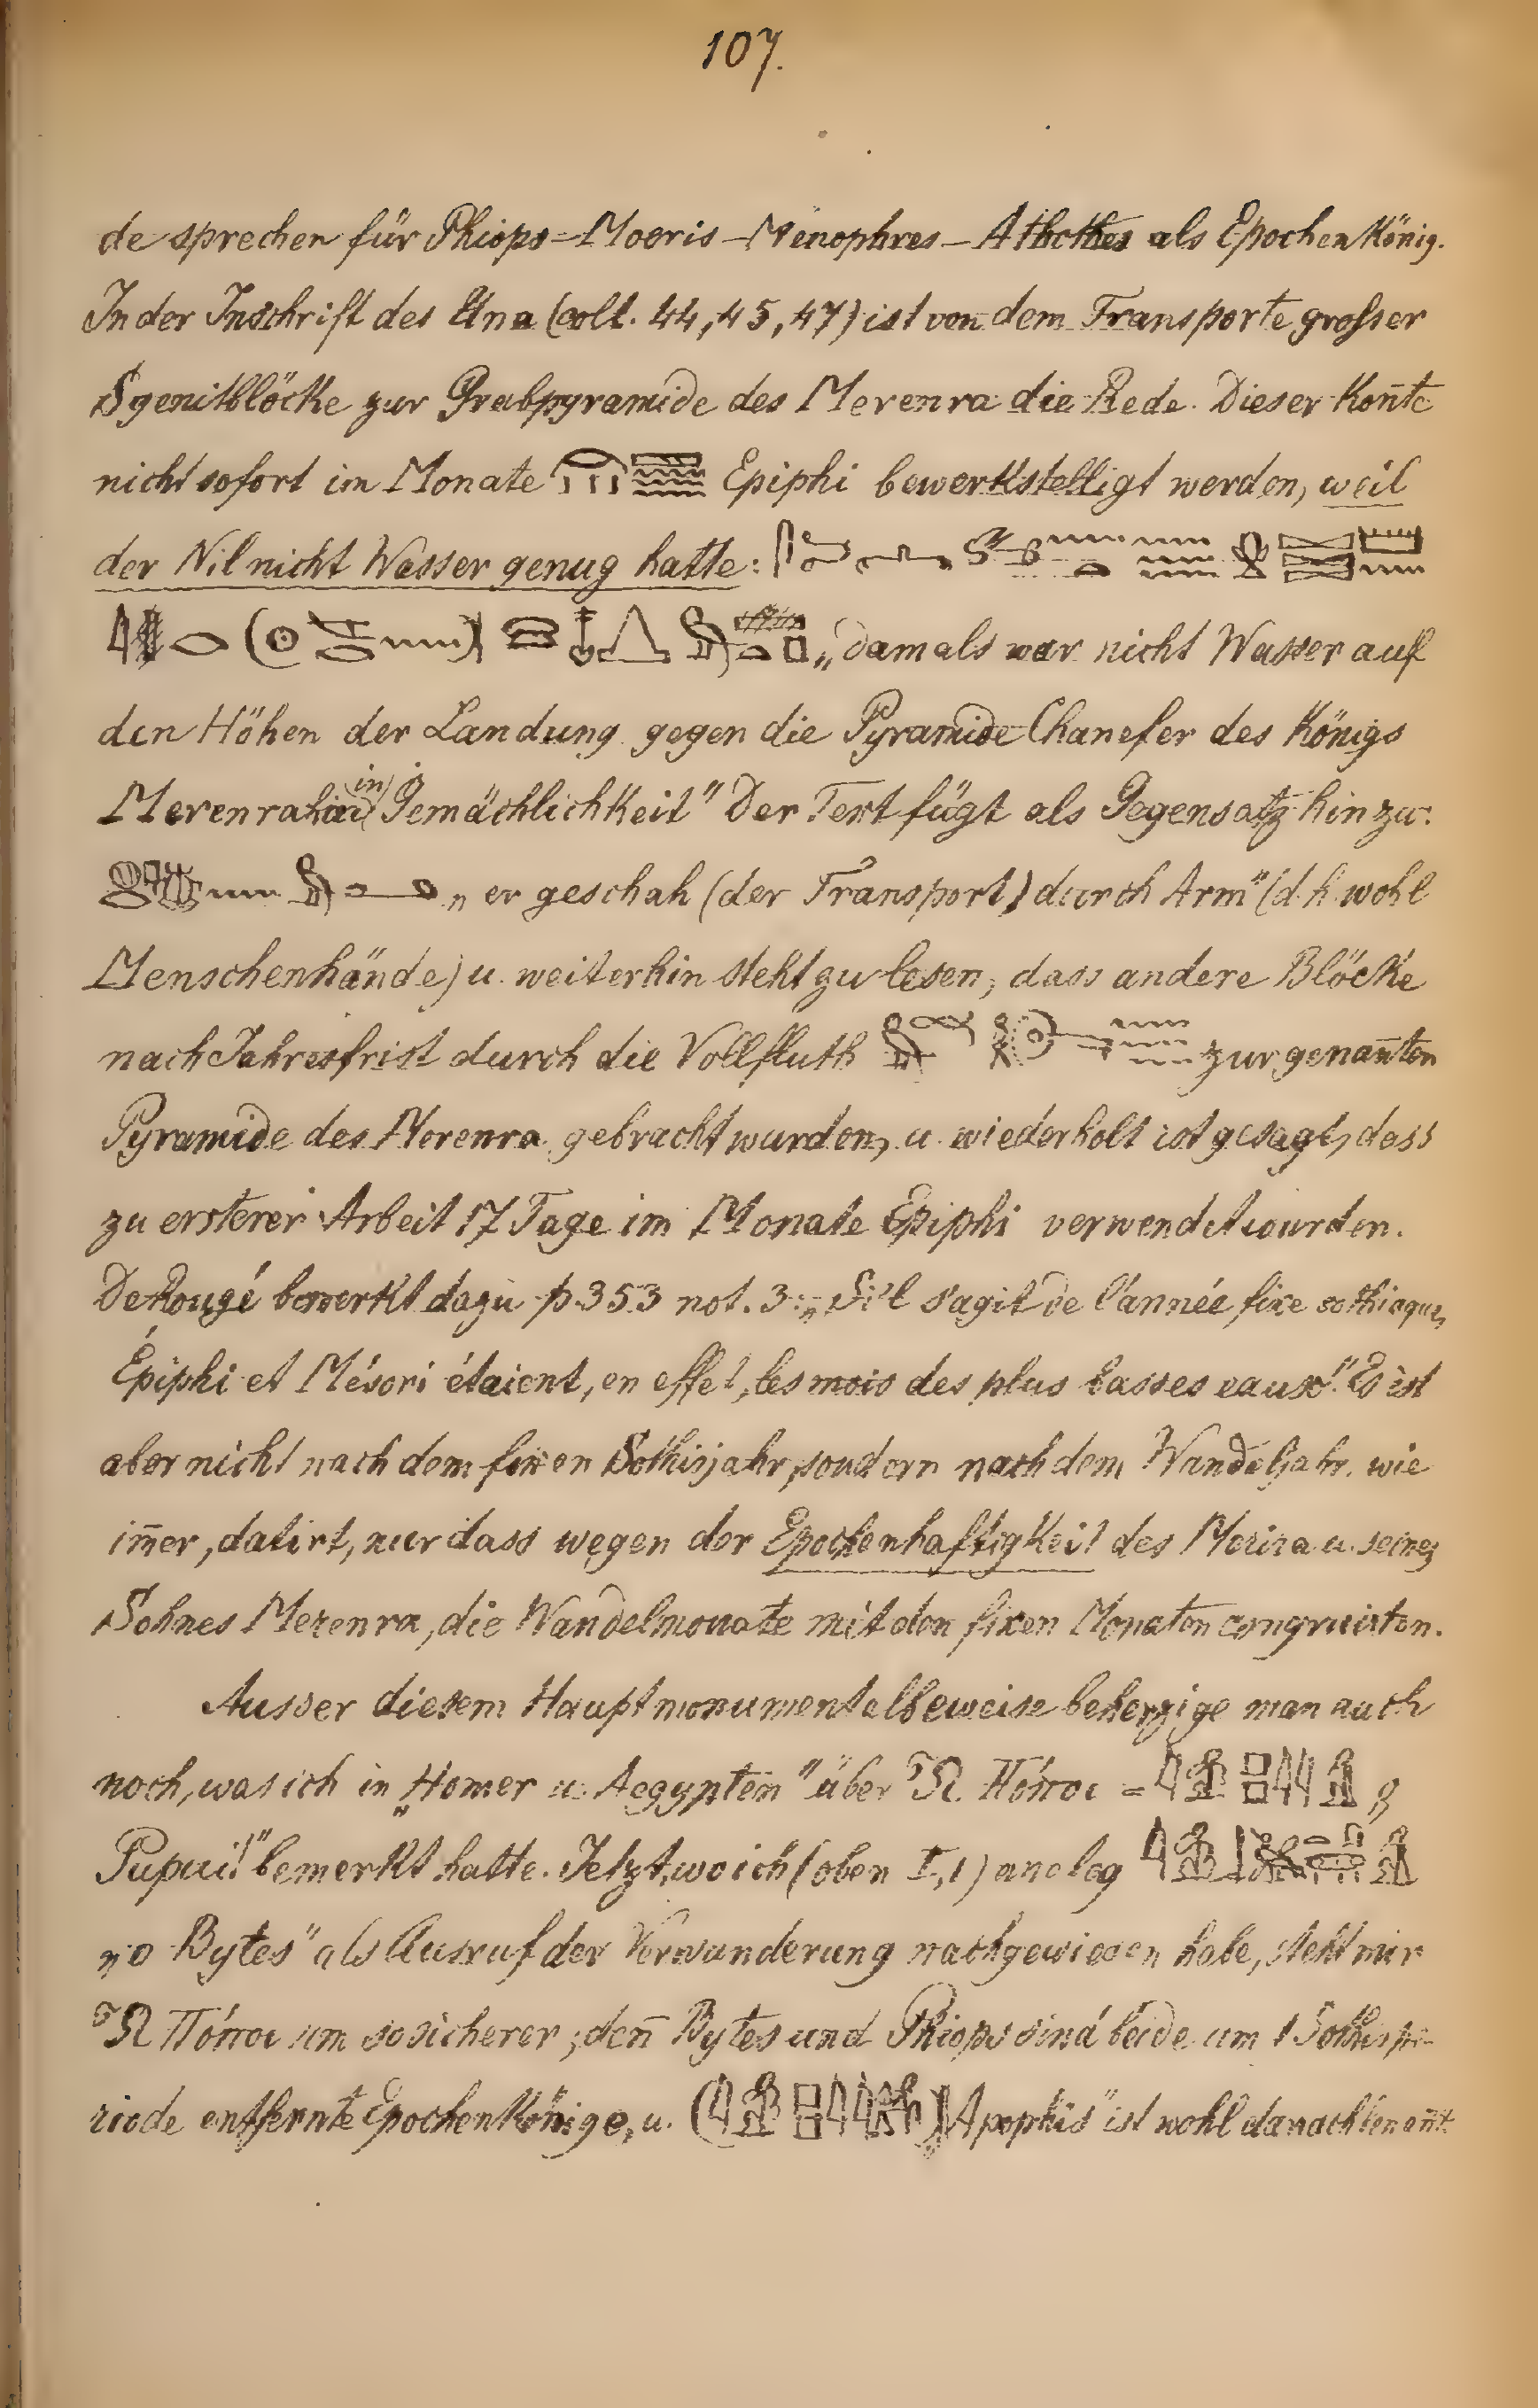 107.
de sprechen für Phiops-Moeris-Menophres-Athothes als Epochenkönig.
In der Inschrift des Una (coll. 44, 45, 47) ist von dem Transporte grosser
Syenitblöcke zur Grabpyramide des Merenra die Rede. Dieser kon̄te
nicht sofort im Monate Epiphi bewerkstelligt werden, weil
der Nil nicht Wasser genug hatte:
„damals war nicht Wasser auf
den Höhen der Landung gegen die Pyramide Chanefer des Königs
Merenra hin in Gemächlichkeit" Der Text fügt als Gegensatz hinzu:
„er geschah (der Transport) durch Arm" (d. h. wohl
Menschenhände) u. weiterhin steht zu lesen, dass andere Blöcke
nach Jahresfrist durch die Vollfluth zur genan̄ten
Pyramide des Merenra gebracht wurden, u. wiederholt ist gesagt, dass
zu ersterer Arbeit 17 Tage im Monate Epiphi verwendet wurden.
De Rougé bemerkt dazu p. 353 not. 3: „S'il s'agit de l'année fixe sothiaque,
Épiphi et Mésori étaient, en effet, les mois des plus basses eaux". Es ist
aber nicht nach dem fixen Sothisjahr, sondern nach dem Wandeljahr, wie
im̄er, datirt, nur dass wegen der Epochenhaftigkeit des Merira u. seines
Sohnes Merenra, die Wandelmonate mit den fixen Monaten congruirten.
Ausser diesem Hauptmonumentalbeweise beherzige man auch
noch, was ich in „Homer u. Aegypten" über Ὦ Πόποι =
Pupui!" bemerkt hatte. Jetzt, wo ich (oben I, 1) analog
„o Bytes" als Ausruf der Verwunderung nachgewiesen habe, steht mir
Ὦ Πόποι um so sicherer; den̄ Bytes und Phiops sind beide um 1 Sothispe-
riode entfernte Epochenkönige, u. Apophis" ist wohl danach benan̄t